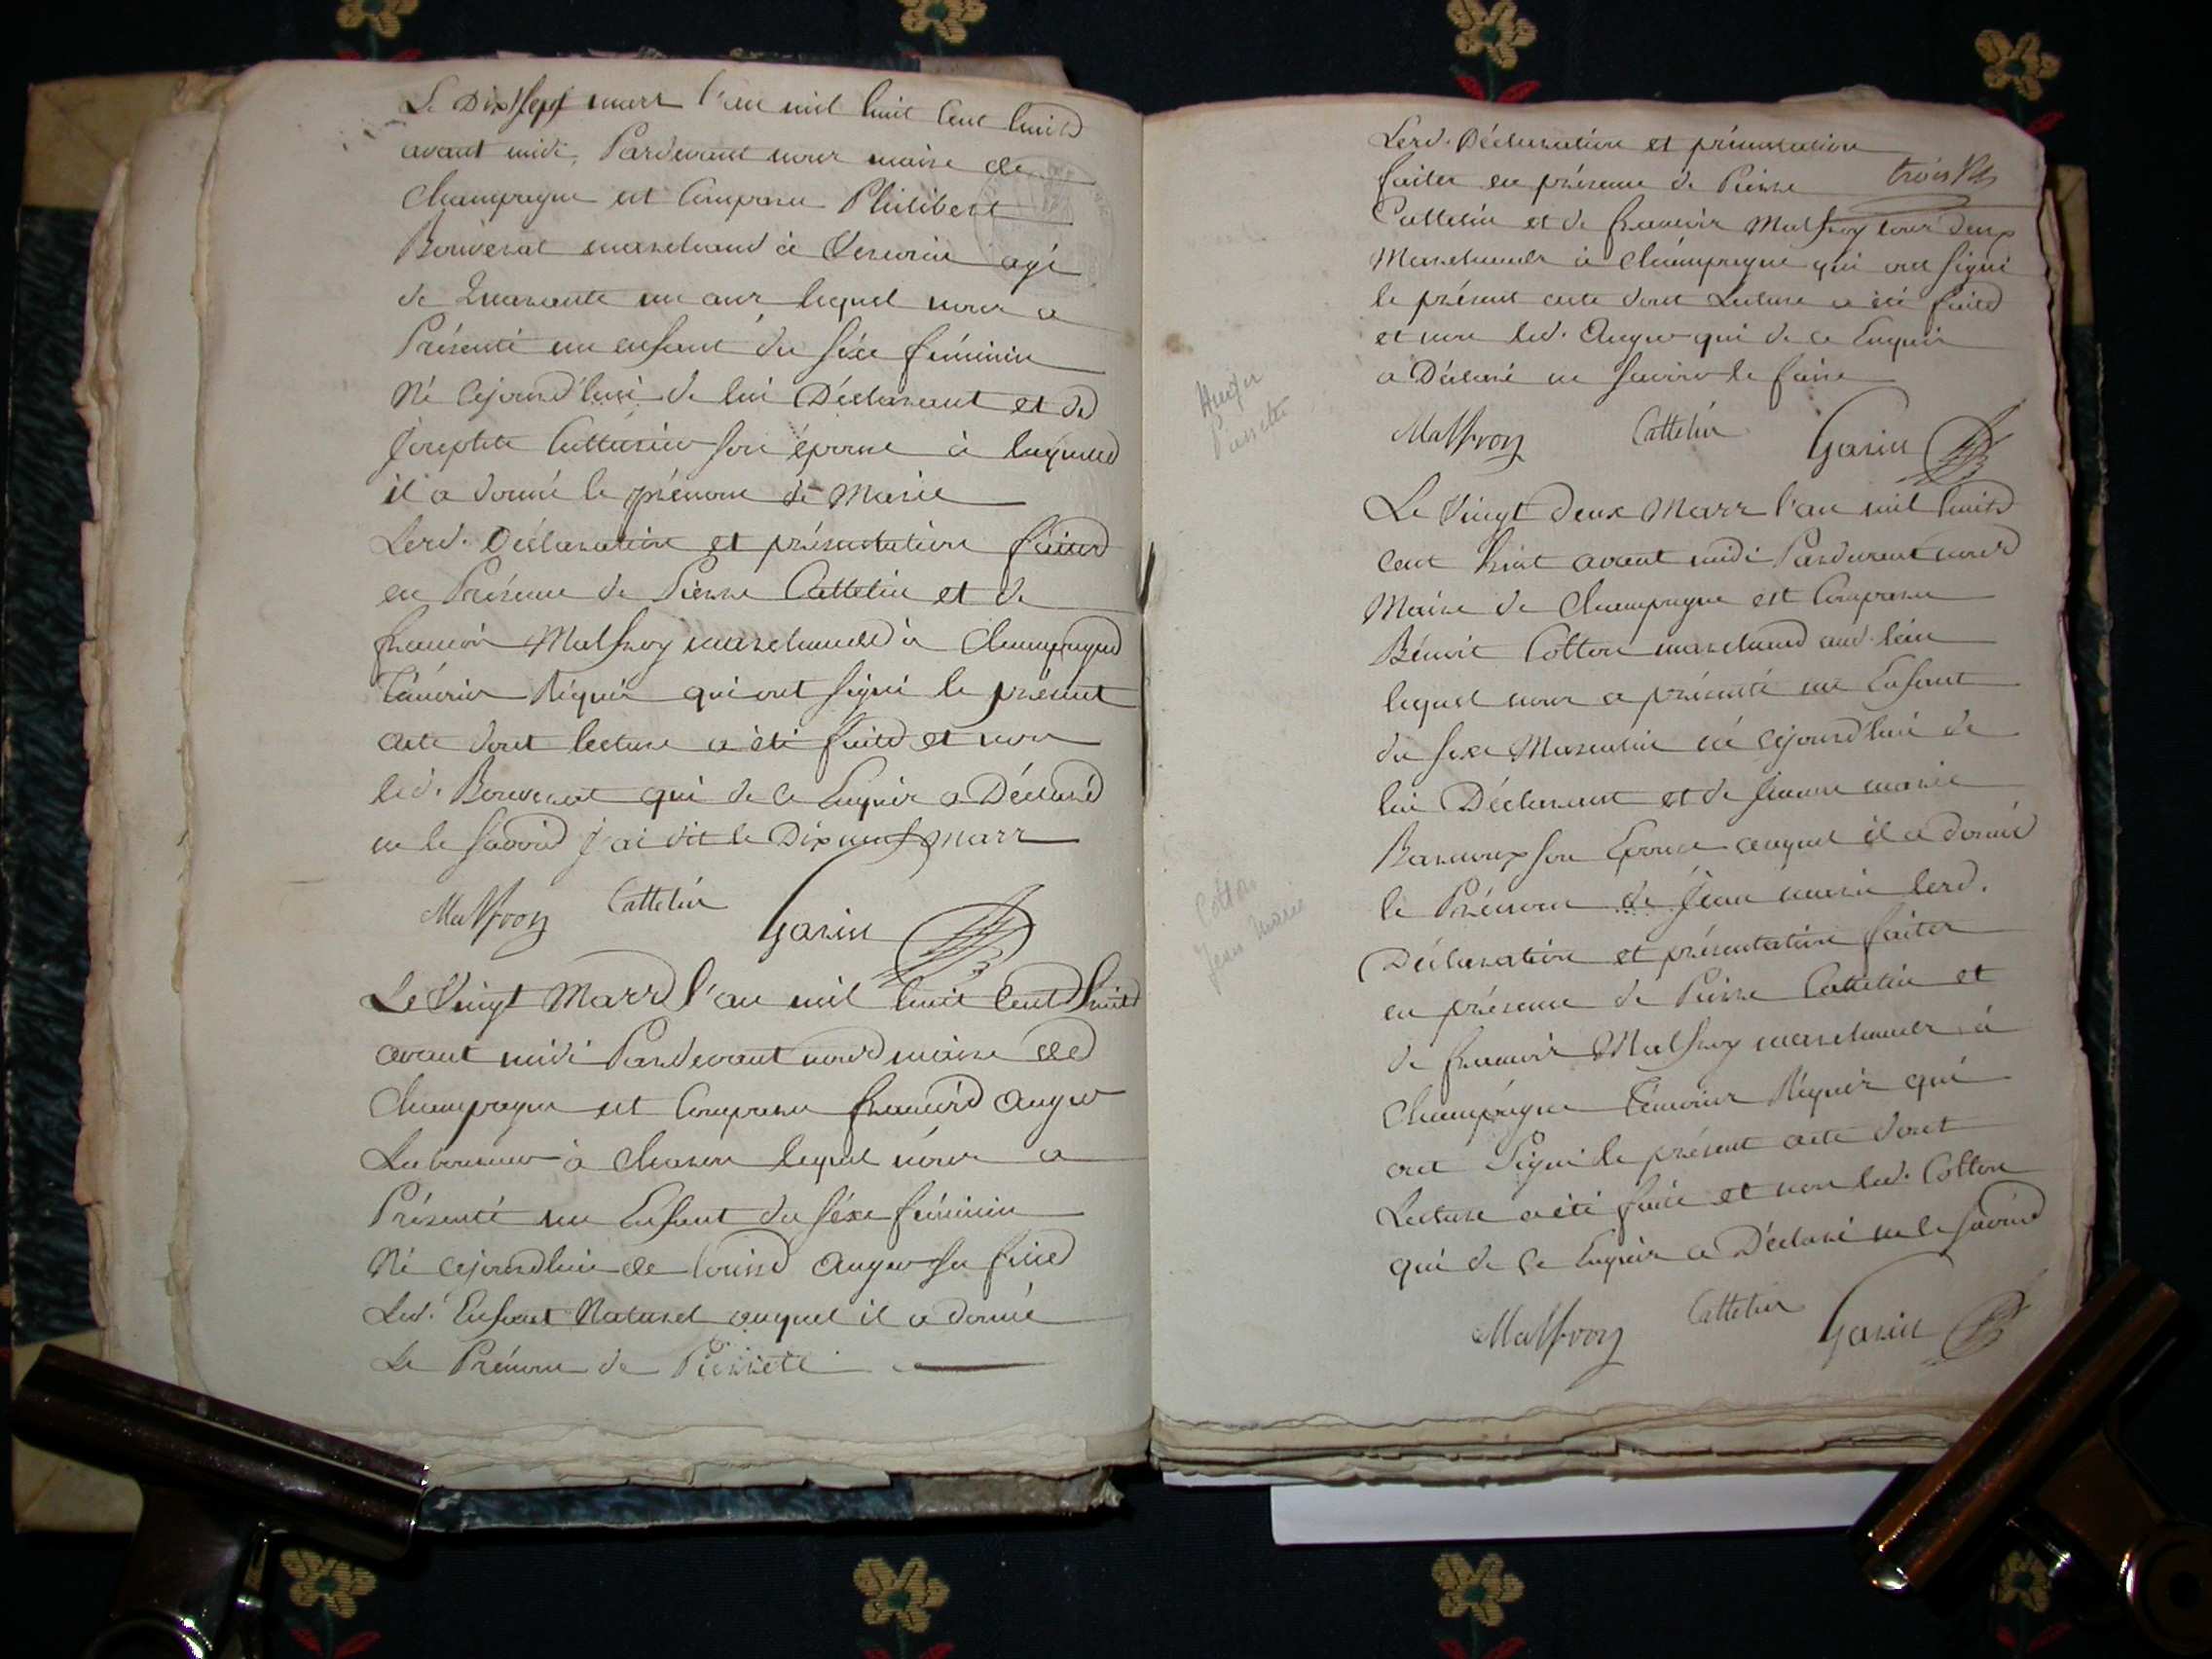 Le Dix Sept mars l'an mil huit Cent huit
avant midi, Pardevant nous maire de
Champagne est Comparu Philibert
Bouverat marchand à Vervrin agé
de Quarante un ans lequel nous a
Présenté un enfant du sèxe féminin
Né Cejourd'hui de lui Déclarant et de
Josephte son épouse à laquelle
il a donné le prénom de Marie
Lesd. Déclaration et présentation faites
en Présence de Pierre Cattelin et de
francois Malfroy marchands à Champagne
témoins Réquis qui ont signé le présent
acte dont lecture a été faite et non
led. Bouverat qui de ce Enquis a Déclaré
ne le savoir j'ai dit le Dix neuf mars
Malfroy Cattelin Garin
Le Vingt Mars l'an mil huit Cent huit
avant midi Pardevant nous maire de
Champagne est Comparu francois Anger
Laboureur à Chason lequel nous a
Présenté un Enfant du séxe féminin
Né cejourdhui de Louise Anger sa fille
Led. Enfant Naturel auquel il a donné
Le Prénom de Pierrete
Lesd. Déclaration et présentation
faites en présence de Pierre
trois
Cattelin et de francois Malfroy tous deux
Marchands à Champagne qui ont signé
le présent acte dont Lecture a été faite
et non led. Anger qui de ce Enquis
a Déclaré ne savoir le faire
Malfroy Cattelin Garin
Anger
Pierrette
Le Vingt deux Mars l'an mil huit
cent huit avant midi Pardevant nous
Maire de Champagne est Comparu
Bénoit Cotton marchand aud. lieu
lequel nous a présenté un Enfant
du sexe Masculin né cejourd'hui de
lui Déclarant et de Jeanne marie
son Epouse auquel il a donné
le Prénom de Jean marie lesd.
Déclaration et présentation faites
en présence de Pierre Cattelin et
de francois Malfroy marchands à
Champagne témoins Réquis qui
ont Signé le présent acte dont
Lecture a été faite et non led. Cotton
qui de ce Enquis a Déclaré ne le savoir
Malfroy Cattelin Garin
Cotton
Jean Marie